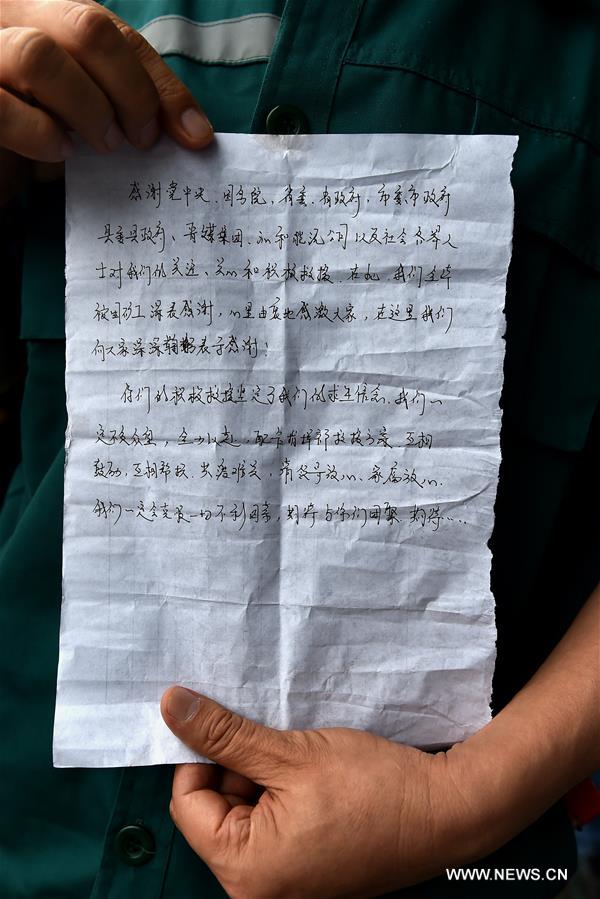 感谢党中央、国务院、省委、省政府、市委、市政府
县委县政府、晋煤集团、永和能源公司以及社会各界人
士对我们的关注、关心和积极救援。在此,我们全体
被困矿工深表感谢,心里由衷地感激大家,在这里我们
向大家深深鞠躬表示感谢!
你们的积极救援坚定了我们的求生信念。我们
定众,全力以赴,配合指挥部救援方案,互相
鼓励,互相帮扶,共渡难关,请领导放心、家属放心。
我们一定会克服一切不利因素,期待与你们团聚。期待
WWW.NEWS.CN